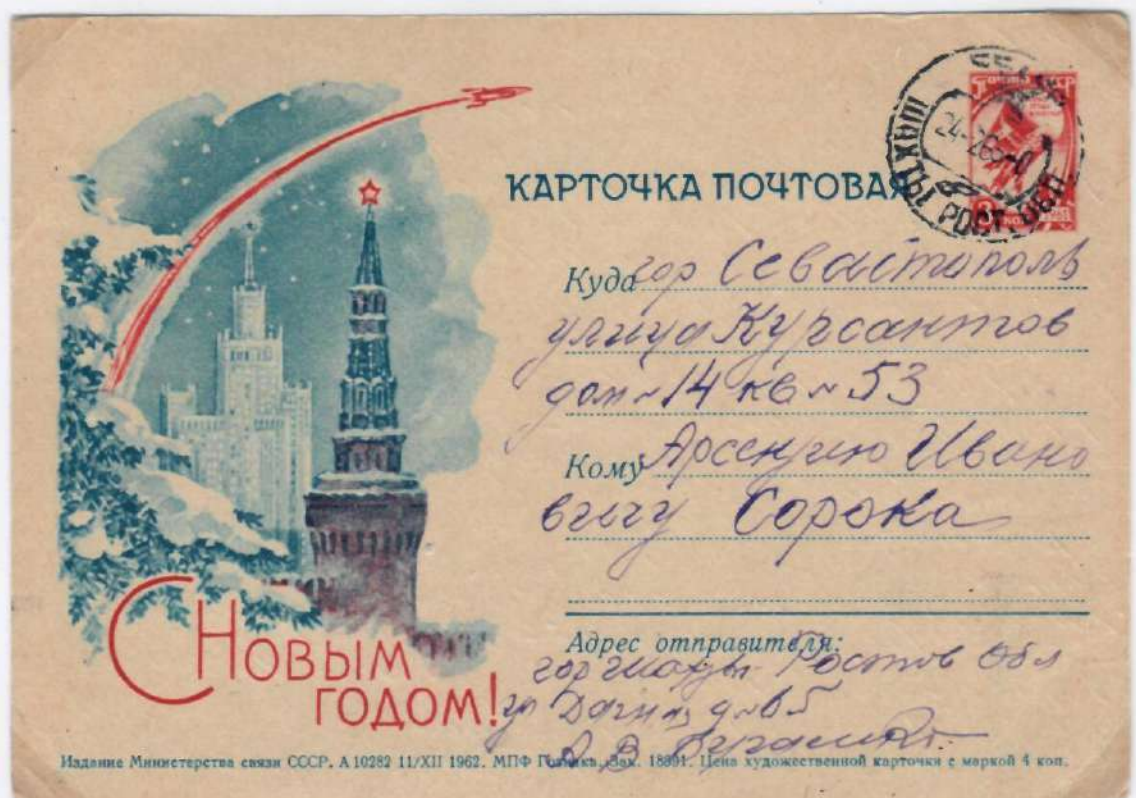 КАРТОЧКА ПОЧТОВАЯ
ШАХТЫ РОСТ. ОБЛ.
Куда гор Севастополь
улица Курсантов
дом № 14 кв № 53
Кому Арсению Ивано
вичу Сорока
Адрес отправителя:
гор Шахты Ростов Обл
А В
С НОВЫМ
ГОДОМ!
Издание Министерства связи СССР. А 10282 11/XII 1962. МПФ Гознака. Зак. 18891. Цена художественной карточки с маркой 4 коп.